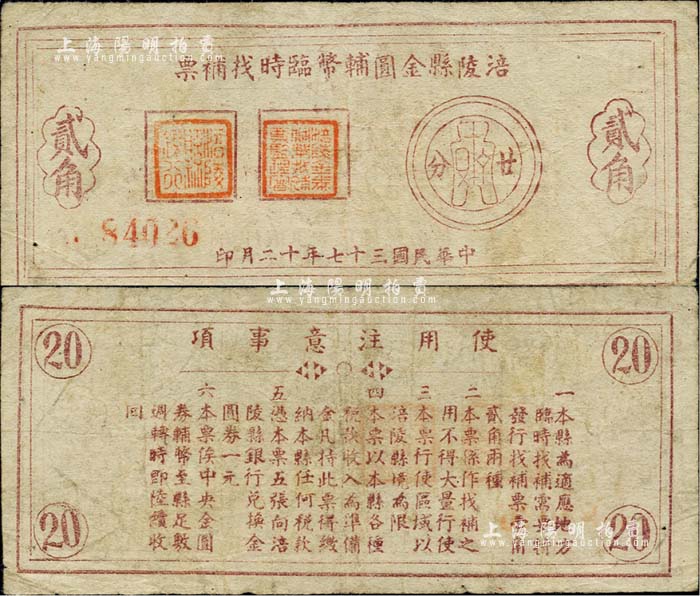 上海陽明拍賣
www.yangmingauction.com
涪陵縣金圓輔幣臨時找補票
貳角
貳角
廿分
84026
中華民國三十七年十二月印
上海陽明拍賣
www.yangmingauction.com
20
20
使用注意事項
一本縣為適應地方
臨時找補需要特
發行找補票壹角
貳角兩種
二本票係作找補之
用不得大量行使
三本票行使區域以
涪陵縣境為限
四本票以本縣各種
稅款收入為準備
金凡持此票得繳
納本縣任何稅款
五憑本票五張向涪
陵縣銀行兌換金
圓券一元
六本票俟中央金圓
券輔幣至縣足敷
週轉時即陸續收
回
20
20
上海陽明拍賣
www.yangmingauction.com